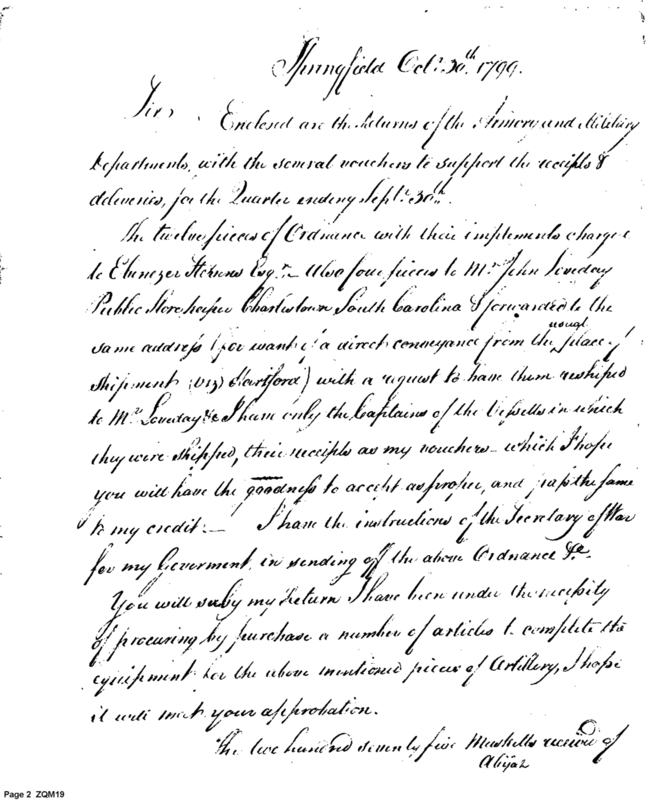 Springfield Octr. 30th. 1799.
Sir,
Enclosed are the Returns of the Armory and Military
Departments, with the several vouchers to support the receipts &
deliveries, for the Quarter ending Septr. 30th.
The twelve pieces of Ordnance with their implements charged
to Ebenezer Stevens Esqr. — Also four pieces to Mr. John Loveday
Public Storekeeper Charlestown South Carolina & forwarded to the
usual
same address (for want of a direct conveyance from the place of
shipment (viz Hartford) with a request to have them reshiped
to Mr. Loveday &c I have only the Captains of the Vessells in which
they were shipped, their receipts as my vouchers — which I hope
you will have the goodness to accept as proper, and pass the same
to my credit. — I have the instructions of the Secretary of War
for my Goverment in sending off the above Ordnance &c.
You will see by my Return I have been under the necessity
of procuring by purchase a number of articles to complete the
equipment for the above mentioned pieces of Artillery, I hope
it will meet your approbation.
The two hundred seventy five Muskets received of
Page 2 ZQM19